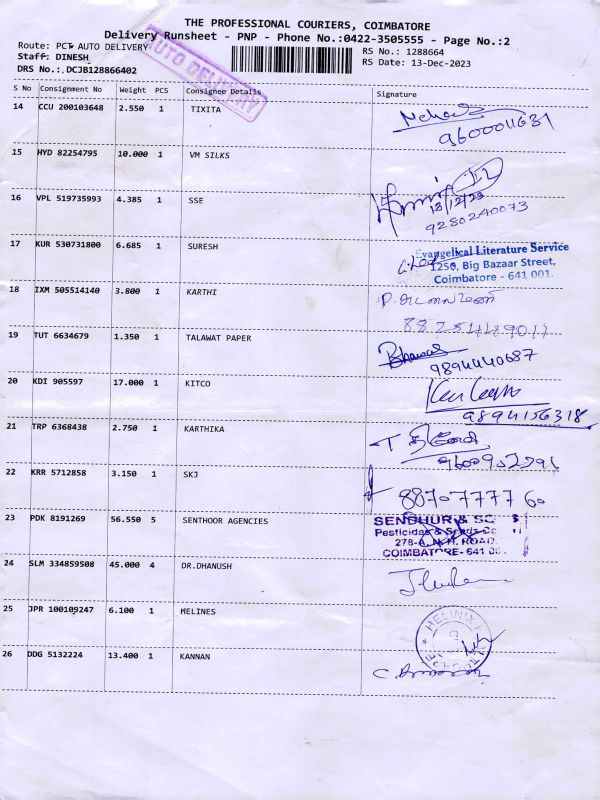 THE PROFESSIONAL COURIERS, COIMBATORE
Delivery Runsheet - PNP - Phone No.:0422-3505555 - Page No.:2
Route: PCT AUTO DELIVERY RS No.: 1288664
Staff: DINESH RS Date: 13-Dec-2023
DRS No.: DCJB128866402
AUTO DELIVERY
S No Consignment No Weight PCS Consignee Details Signature
14 CCU 200103648 2.550 1 TIXITA
9600011631
15 HYD 82254795 10.000 1 VM SILKS
16 VPL 519735993 4.385 1 SSE
13/12/23
9280240073
17 KUR 530731800 6.685 1 SURESH
Evangelical Literature Service
1250, Big Bazaar Street,
Coimbatore - 641 001.
18 IXM 505514140 3.800 1 KARTHI
19 TUT 6634679 1.350 1 TALAWAT PAPER
9894440687
20 KDI 905597 17.000 1 KITCO
9894156318
21 TRP 6368438 2.750 1 KARTHIKA
22 KRR 5712858 3.150 1 SKJ
8870777760
23 PDK 8191269 56.550 5 SENTHOOR AGENCIES
SENDHUR &
Pesticides & Seeds
278-A, N.H. ROAD,
COIMBATORE- 641
24 SLM 334859508 45.000 4 DR.DHANUSH
25 JPR 100109247 6.100 1 MELINES
26 DDG 5132224 13.400 1 KANNAN